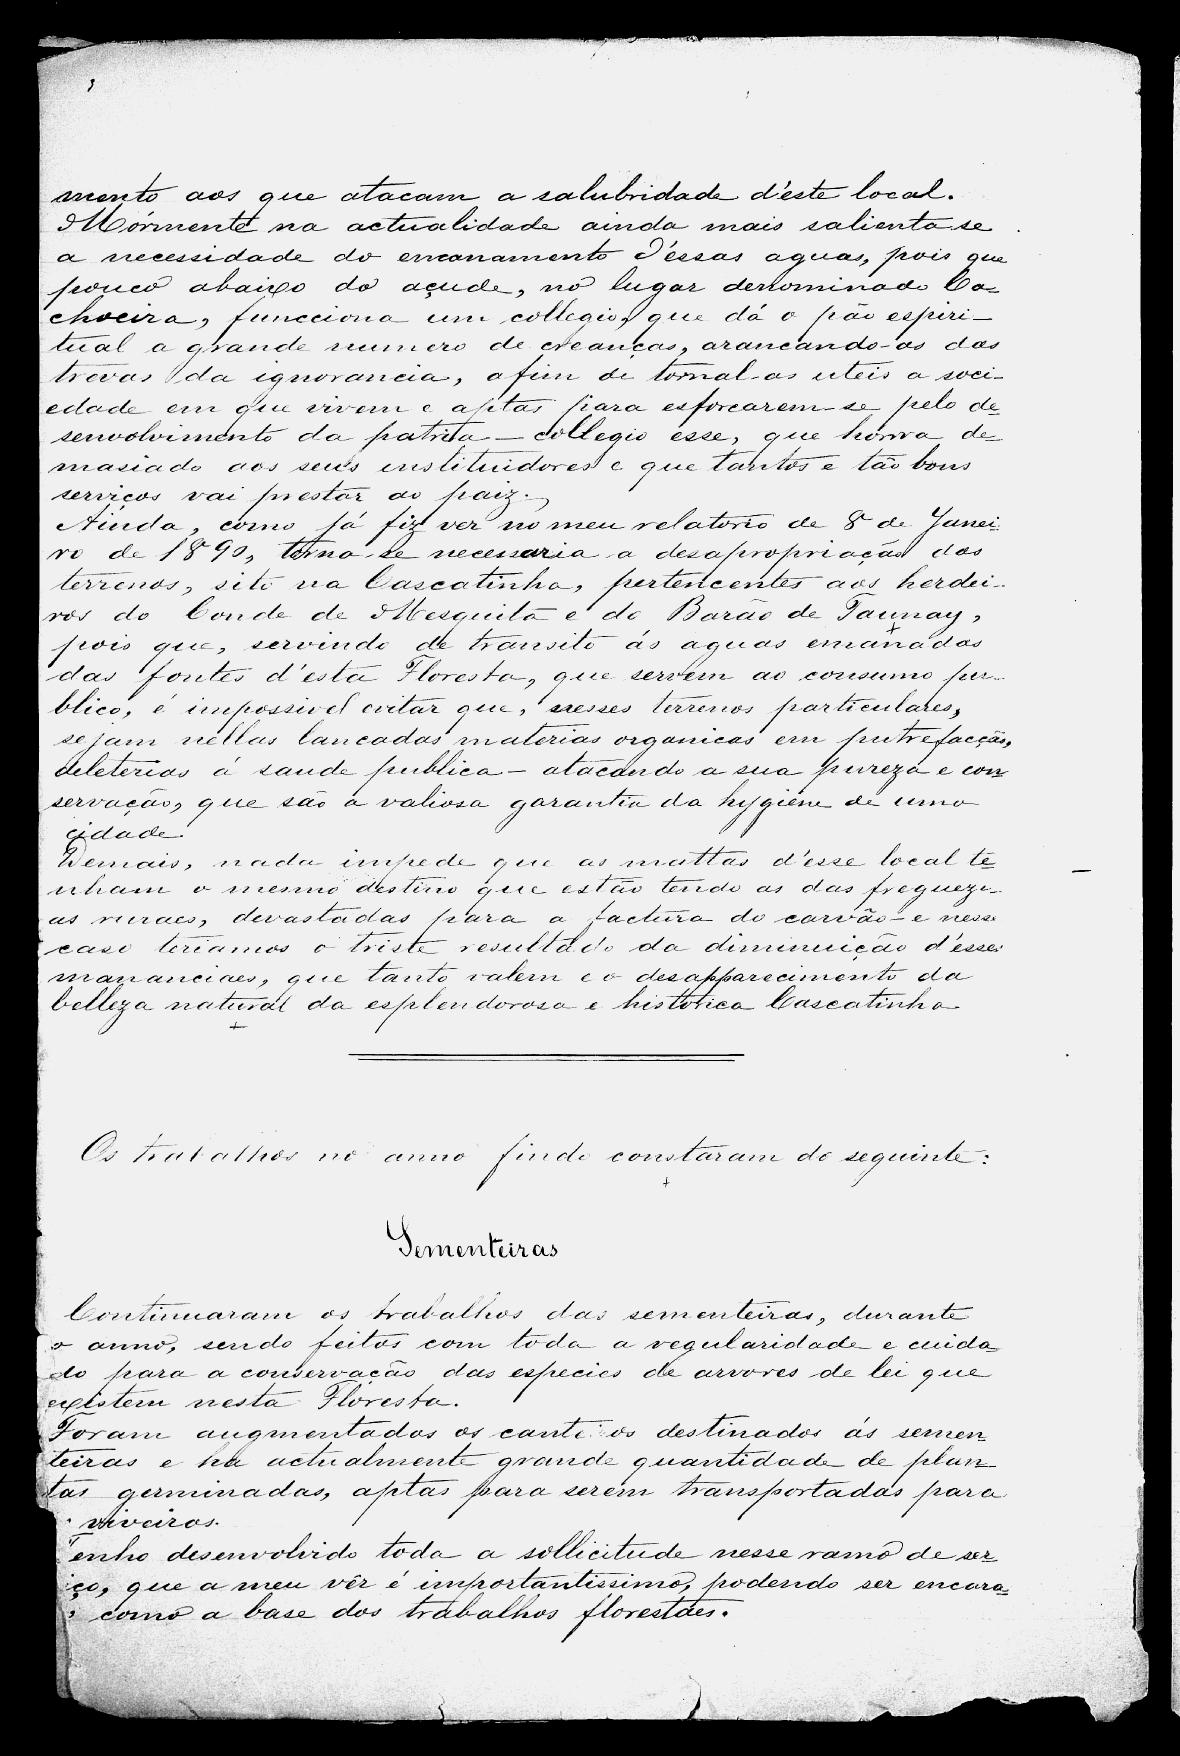 mento aos que atacam a salubridade d'este local.
Mórmente na actualidade ainda mais salienta-se
a necessidade do encanamento d'éssas aguas, pois que
pouco abaixo do açude, no lugar denominado Ca=
choeira, funcciona um collegio, que dá o pão espiri-
tual a grande numero de creanças, arancando-as das
trevas da ignorancia, afim de tornal-as uteis a soci-
edade em que vivem e aptas para esforcarem-se pelo de=
senvolvimento da patria - collegio esse, que honra de=
masiado aos seus instituidores e que tantos e tão bons
serviços vai prestar ao paiz.
Ainda, como já fiz ver no meu relatorio de 8 de Janei-
ro de 1890, torna-se necessaria a desapropriação dos
terrenos, siti na Cascatinha, pertencentes aos herdei-
ros do Conde de Mesquita e do Barão de Taunay,
pois que, servindo de transito ás aguas emanadas
das fontes d'esta Floresta, que servem ao consumo pu-
blico, é impossivel evitar que, nesses terrenos particulares,
sejam nellas lancadas materias organicas em putrefacção,
deleterias á saude publica - atacando a sua pureza e con=
servação, que são a valiosa garantia da hygiene de uma
cidade.
Demais, nada impede que as mattas d'esse local te=
nham o mesmo destino que estão tendo as das freguezi-
as ruraes, devastadas para a factura do carvão - e nesse
caso teriamos o triste resultado da diminuição d'esses
mananciaes, que tanto valem e o desapparecimento da
belleza natural da esplendorosa e historica Cascatinha
Os trabalhos no anno findo constaram do seguinte:
Sementeiras
Continuaram os trabalhos das sementeiras, durante
o anno, sendo feitos com toda a regularidade e cuida=
do para a conservação das especies de arvores de lei que
existem nesta Floresta.
Foram augmentados os canteiros destinados ás semen=
teiras e ha actualmente grande quantidade de plan-
tas germinadas, aptas para serem transportadas para
viveiros.
Tenho desenvolvido toda a sollicitude nesse ramo de ser=
iço, que a meu vêr é importantissimo, podendo ser encara=
como a base dos trabalhos florestaes.